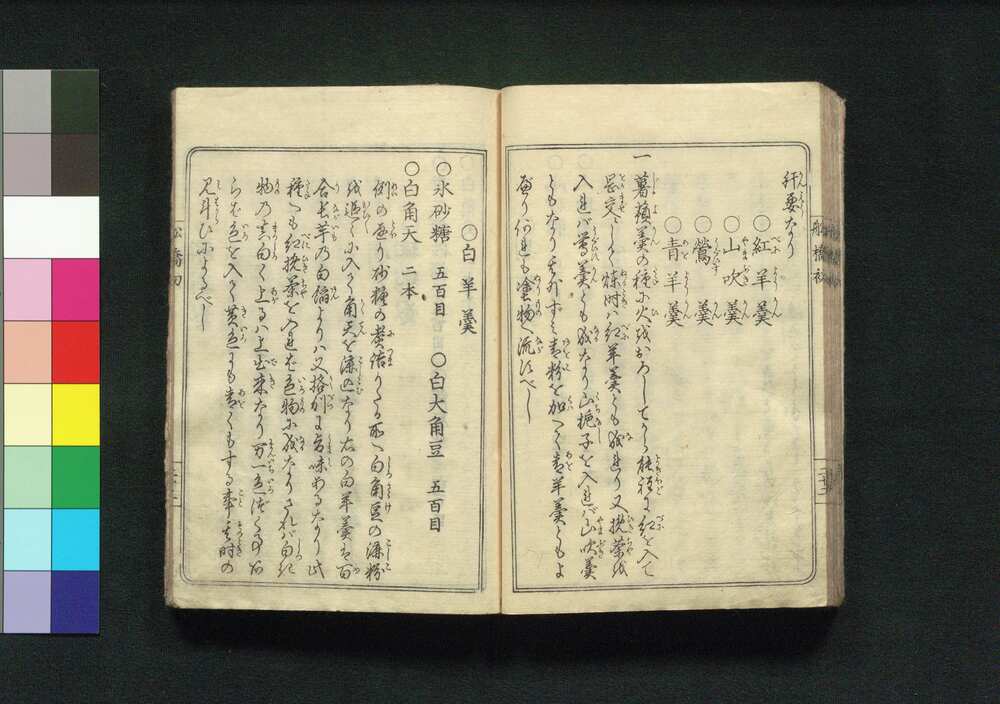 肝要なり
○紅羊羹
○山吹羹
○鶯羹
○青羊羹
一薯蕷羹の種に火を おろしてから 紅を入て
時ハ紅羊羹とも成れり又挽茶を
入れバ鶯羹とも成なり山梔子を入れバ山吹羹
ともなり 青粉を加へて青羊羹ともよ
何れも塗物へ流すべし
○白羊羹
○氷砂糖 五百目 ○白大角豆 五百目
○白角天 二本
例の通り砂糖の煮詰りたる所へ白角豆の漉粉
を 入て角天を漉込なり右の白羊羹は百
合長芋の白餡よりハ又格別に旨味あるなり此
種へも紅挽茶を入れば色物に成なりされバ白き
物の 白く上るハ上出来なり万一色
らば色を入て黄色にも青くもする事 時の
見斗ひによるべし
船橋